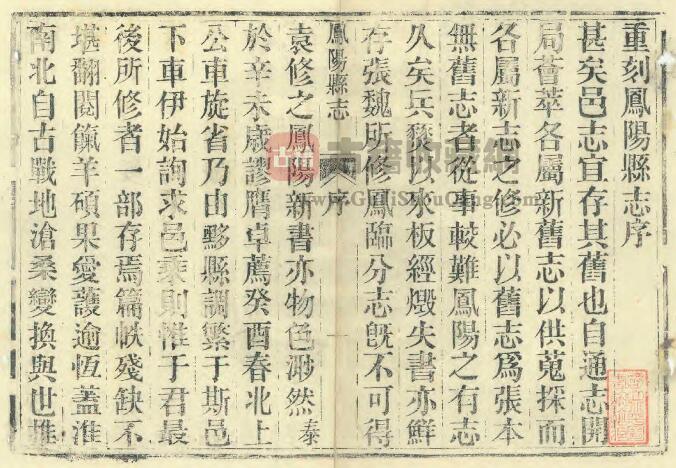 重刻鳳陽縣志序
甚矣邑志宜存其舊也自通志開
局薈萃各屬新舊志以供蒐採而
各屬新志之修必以舊志爲張本
無舊志者從事較難鳳陽之有志
久矣兵燹以來板經燬失書亦鮮
存張魏所修鳳臨分志旣不可得
鳳陽縣志
序
袁修之鳳陽新書亦物色渺然泰
於辛未歲謬膺卓薦癸酉春北上
公車旋省乃由黟縣調繁于斯邑
下車伊始詢求邑乘則惟于君最
後所修者一部存焉篇帙殘缺不
堪翻閱餼羊碩果愛護逾恆蓋淮
南北自古戰地滄桑變換與世推
古籍收藏網